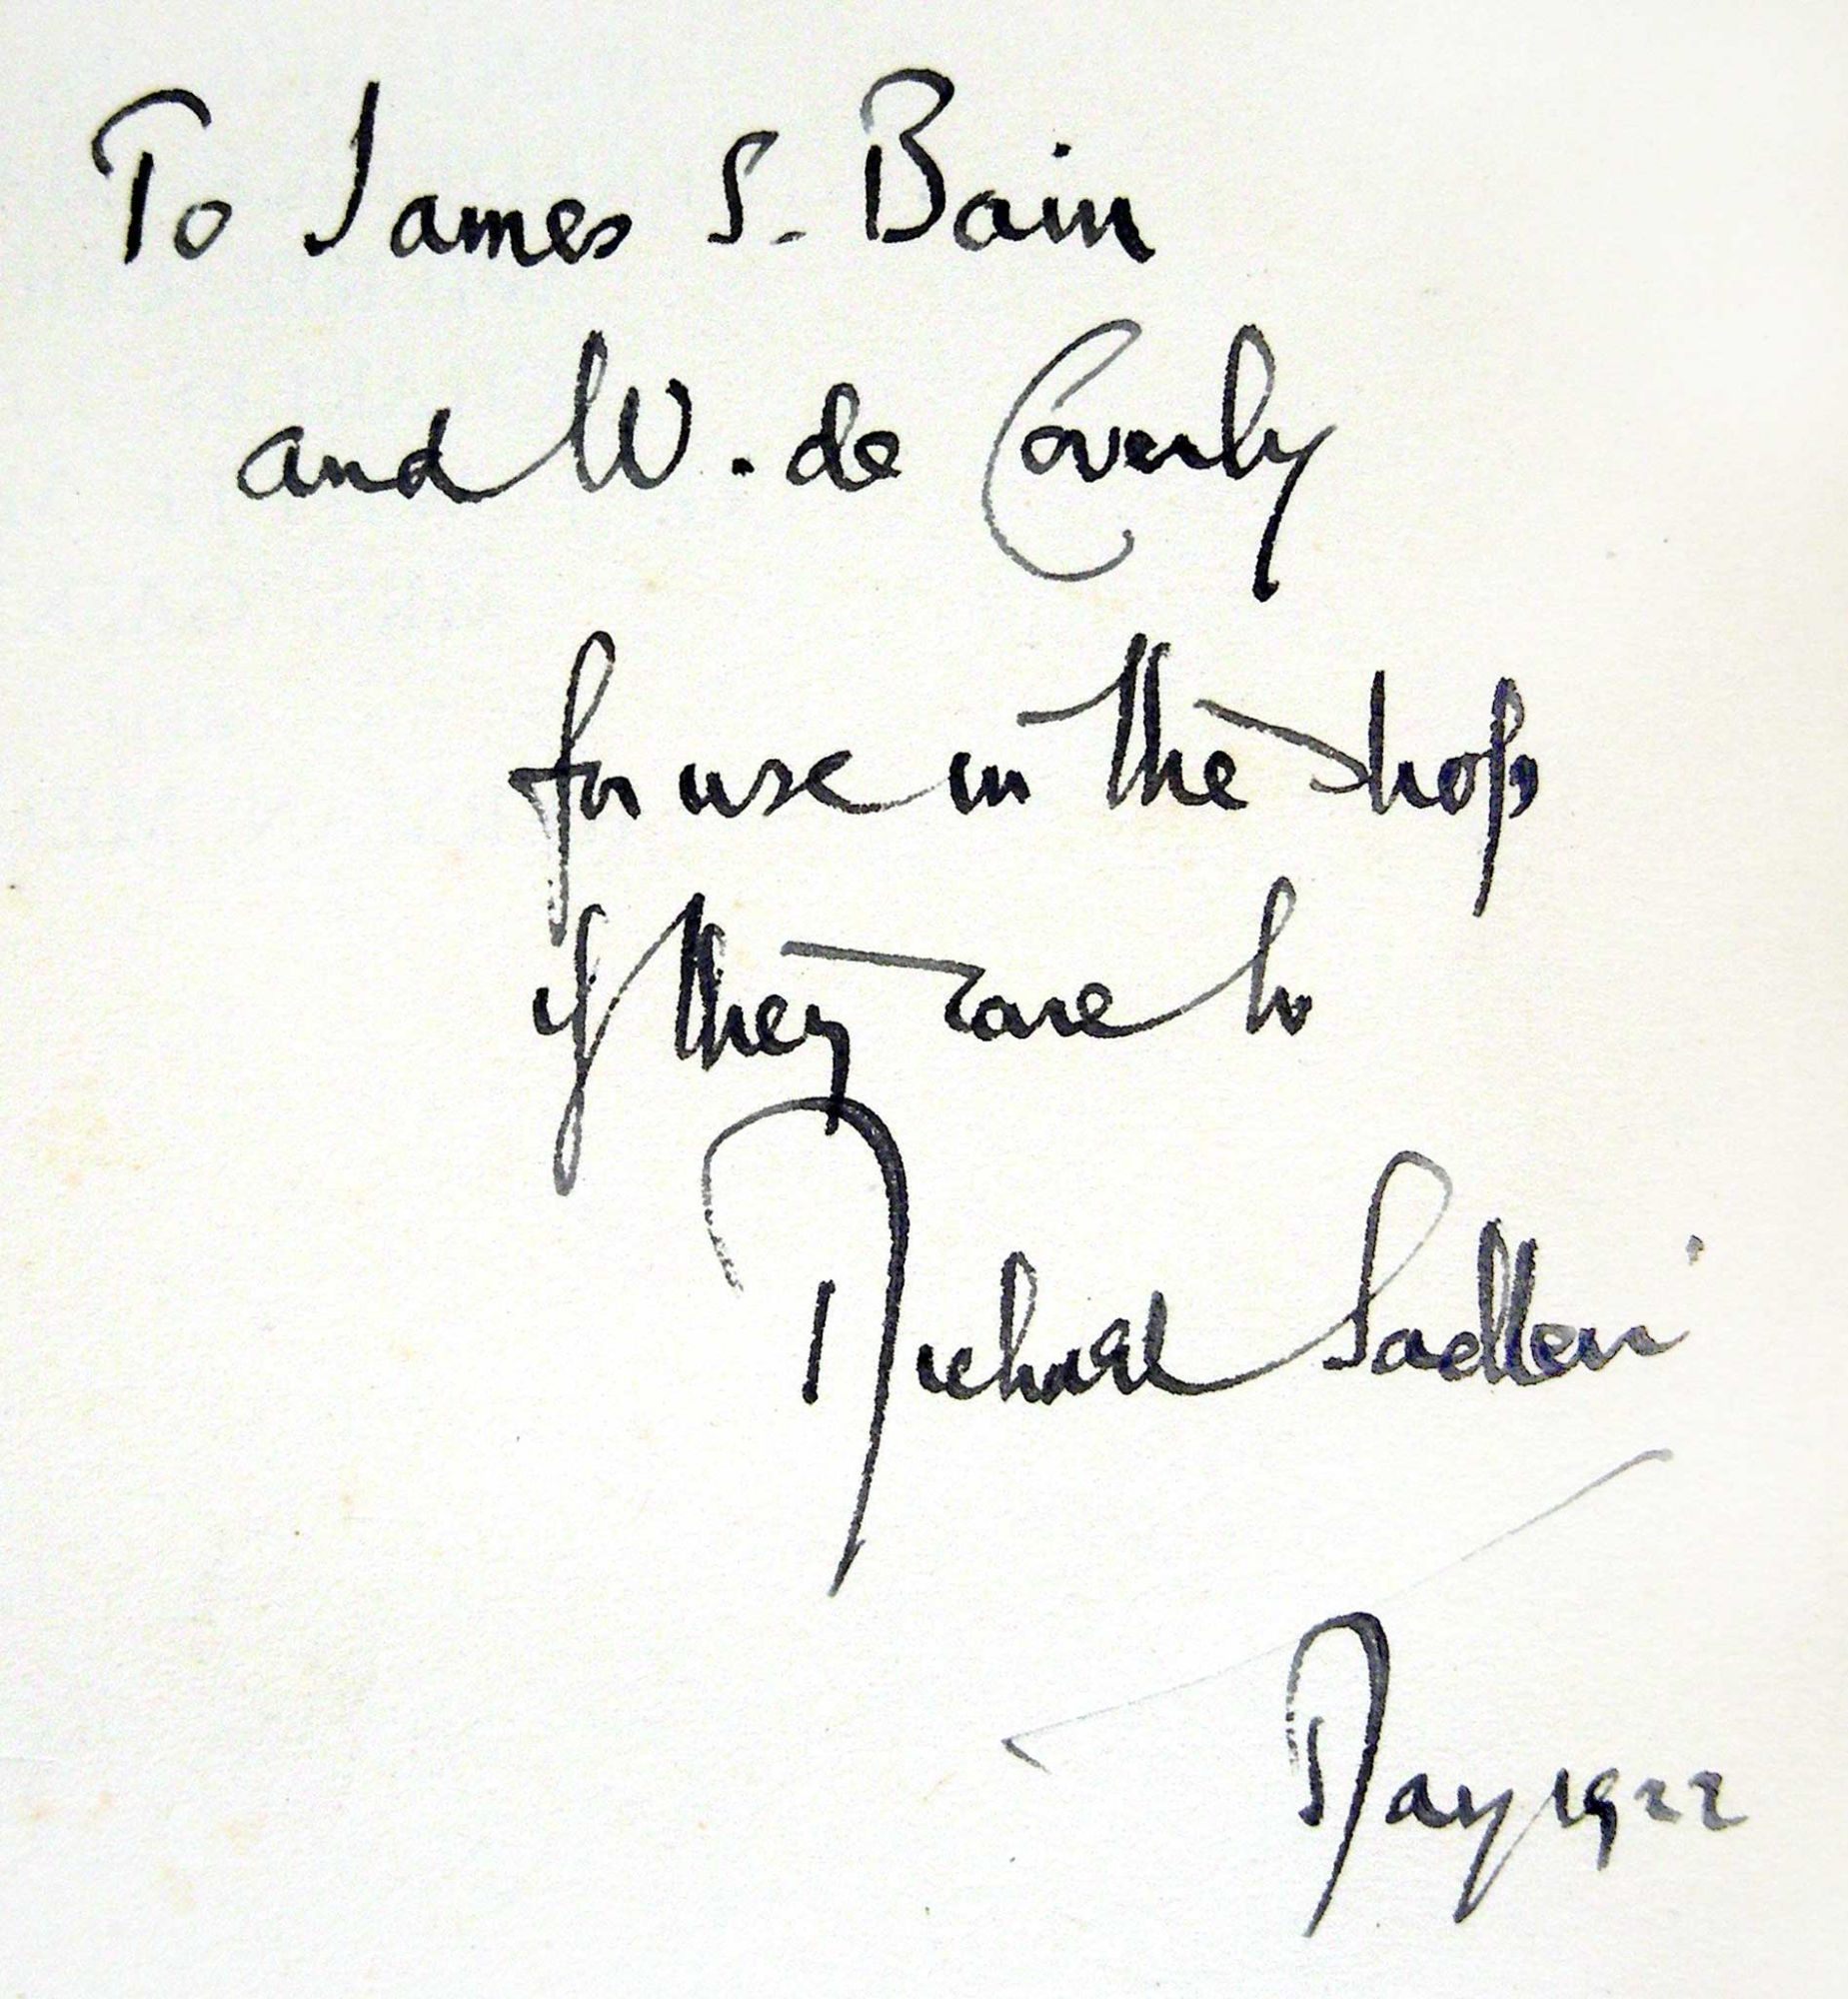 To James S. Bain
and W. de Coverly
for use in the shop
if they care to
Michael Sadleir
May 1922